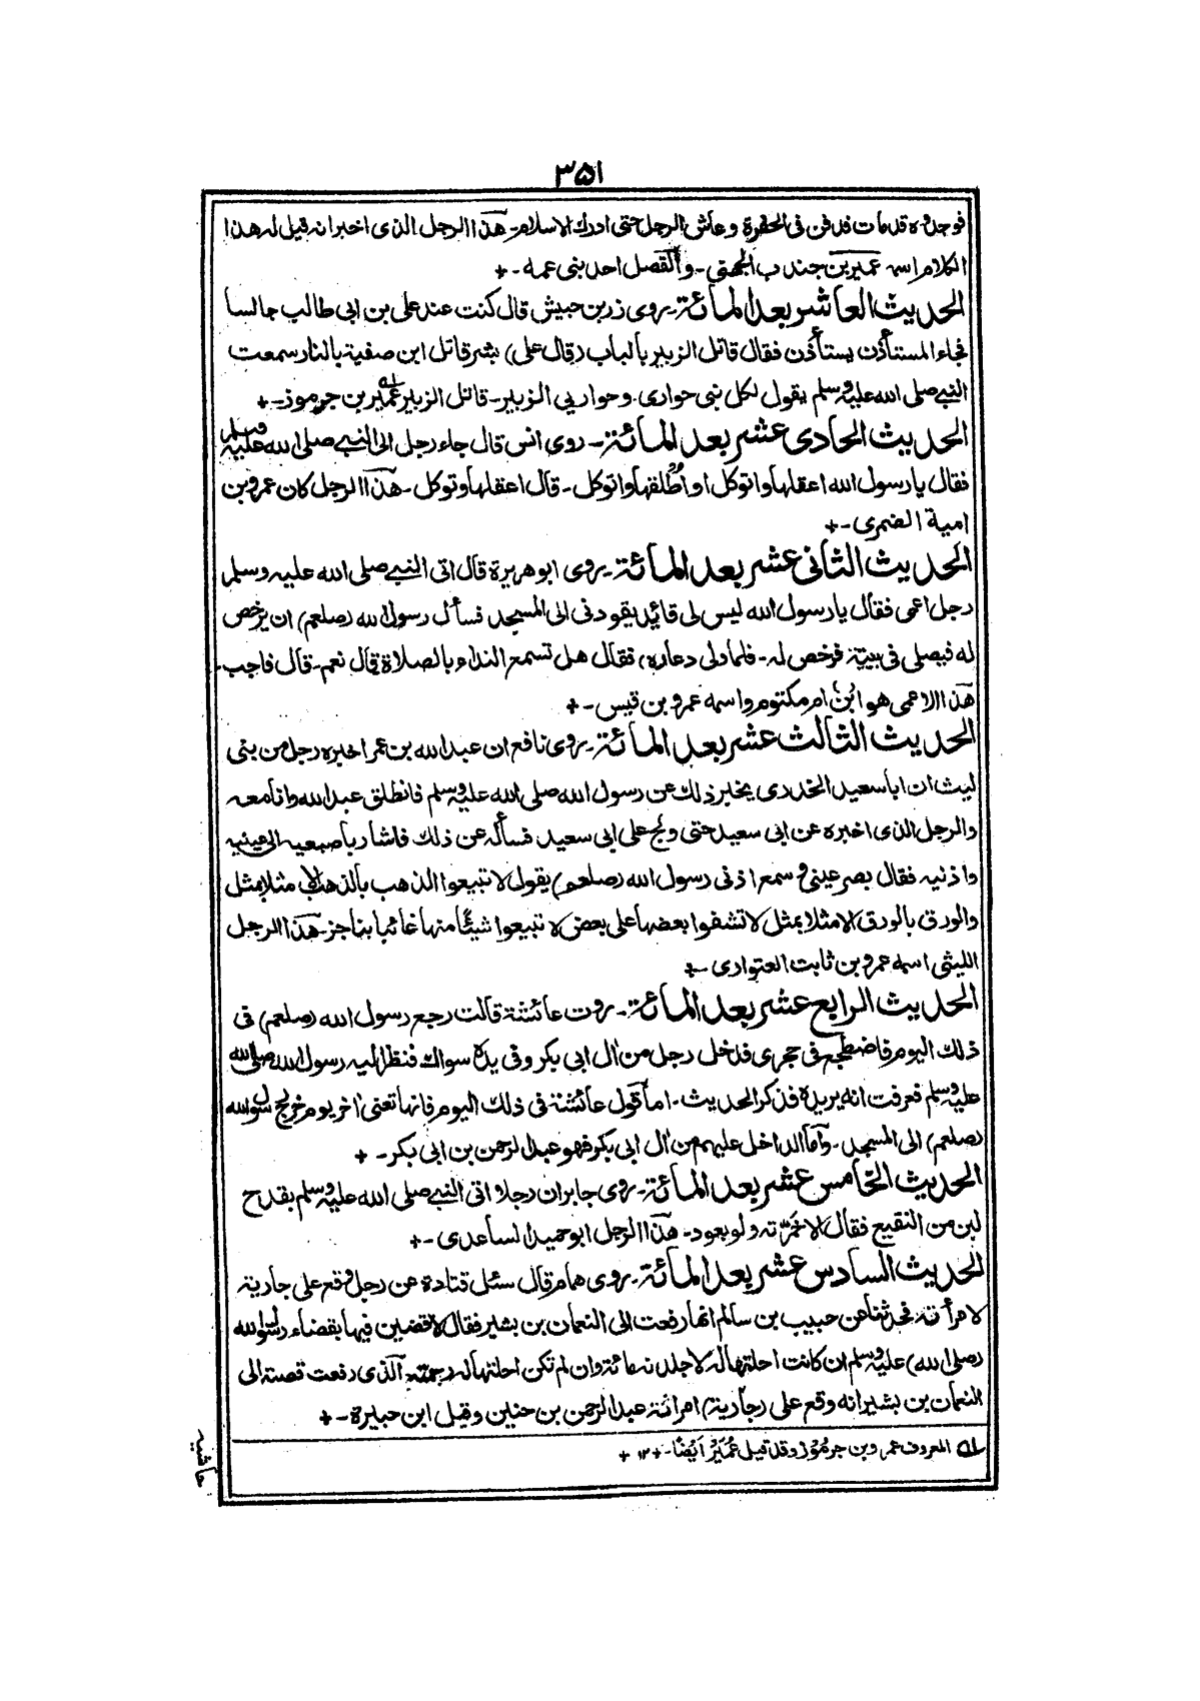 ۳۵۱
فوجدوه قدمات فدفن فی الحفرة وعاش الرجل حتی ادرك الاسلام۔ هٰذا الرجل الذی اخبر انه قیل له هذا
الکلام اسمه عمیر بن جندب الجهنی۔ والقصل احد بنی عمه۔+
الحدیث العاشر بعد المائة۔ یروی زر بن حبیش قال کنت عند علی بن ابی طالب جالسا
فجاء المستأذن یستأذن فقال قاتل الزبیر بالباب (قال علی) بشر قاتل ابن صفیة بالنار سمعت
النبی صلی الله علیه وسلم یقول لکل نبی حواری۔ وحواریی الزبیر۔ قاتل الزبیر عمیر بن جرموز۔+
الحدیث الحادی عشر بعد المائة۔ روی انس قال جاء رجل الی النبی صلی الله علیه وسلم
فقال یا رسول الله اعقلها واتوکل او اُطْلقها واتوکل۔ قال اعقلها وتوکل۔ هٰذا الرجل کان عمرو بن
امیة الضمری۔+
الحدیث الثانی عشر بعد المائة۔ یروی ابوهریرة قال اتی النبی صلی الله علیه وسلم
رجل اعمی فقال یا رسول الله لیس لی قائد یقودنی الی المسجد فسأل رسول الله (صلعم) ان یرخص
له فیصلی فی بیته فرخص له۔ فلما ولی دعاه، فقال هل تسمع النداء بالصلاة قال نعم۔ قال فاجب۔
هٰذا الاعمی هو ابن ام مکتوم واسمه عمرو بن قیس۔+
الحدیث الثالث عشر بعد المائة۔ یروی نافع ان عبد الله بن عمر اخبره رجل من بنی
لیث ان ابا سعید الخدری یخبر ذلك عن رسول الله صلی الله علیه وسلم فانطلق عبد الله وانا معه
والرجل الذی اخبره عن ابی سعید حتی ولج علی ابی سعید فسأله عن ذلك فاشار باصبعیه الی عینیه
واذنیه فقال بصر عینی وسمع اذنی رسول الله (صلعم) یقول لا تبیعوا الذهب بالذهب الا مثلا بمثل
والورق بالورق الا مثلا بمثل لا تشفوا بعضها علی بعض لا تبیعوا شیئًا منها غائبا بناجز۔ هٰذا الرجل
اللیثی اسمه عمرو بن ثابت العتواری۔+
الحدیث الرابع عشر بعد المائة۔ روت عائشة قالت رجع رسول الله (صلعم) فی
ذلك الیوم فاضطجع فی حجری فدخل رجل من اٰل ابی بکر وفی یده سواك فنظر الیه رسول الله صلی الله
علیه وسلم فعرفت انه یریده فذکر الحدیث۔ اما قول عائشة فی ذلك الیوم فانها تعنی اٰخر یوم خرج رسول الله
(صلعم) الی المسجد۔ واما الداخل علیهم من اٰل ابی بکر فهو عبد الرحمن بن ابی بکر۔+
الحدیث الخامس عشر بعد المائة۔ یروی جابر ان رجلا اتی النبی صلی الله علیه وسلم بقدح
لبن من النقیع فقال الا خَمّرته ولو بعود۔ هٰذا الرجل ابو حمید الساعدی۔+
الحدیث السادس عشر بعد المائة۔ یروی همام قال سئل قتادة عن رجل وقع علی جاریة
لامرأته فحدثنا عن حبیب بن سالم انها رفعت الی النعمان بن بشیر فقال لاقضین فیها بقضاء رسول الله
(صلی الله) علیه وسلم ان کانت احلتها له لاجلدنه مائة وان لم تکن احلتها له رجمته۔ الذی رفعت قصته الی
النعمان بن بشیر انه وقع علی (جاریة) امرأته عبد الرحمن بن حنین وقیل ابن حبیرة۔+
له المعروف عمرو بن جرموز وقد قیل عُمَیْرٌ اَیْضًا۔+ ۱۲ +
حاشیه